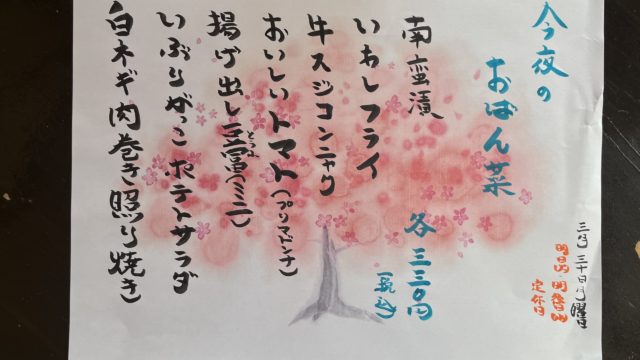 今夜の
おばん菜
三月三十日月曜日
明日火・明後日水
定休日
各三三〇円
(税込)
南蛮漬
いわしフライ
牛スジコンニャク
おいしいトマト(プリマドンナ)
揚げ出し豆富(ミニ)
とうふ
いぶりがっこポテトサラダ
白ネギ肉巻き照り焼き